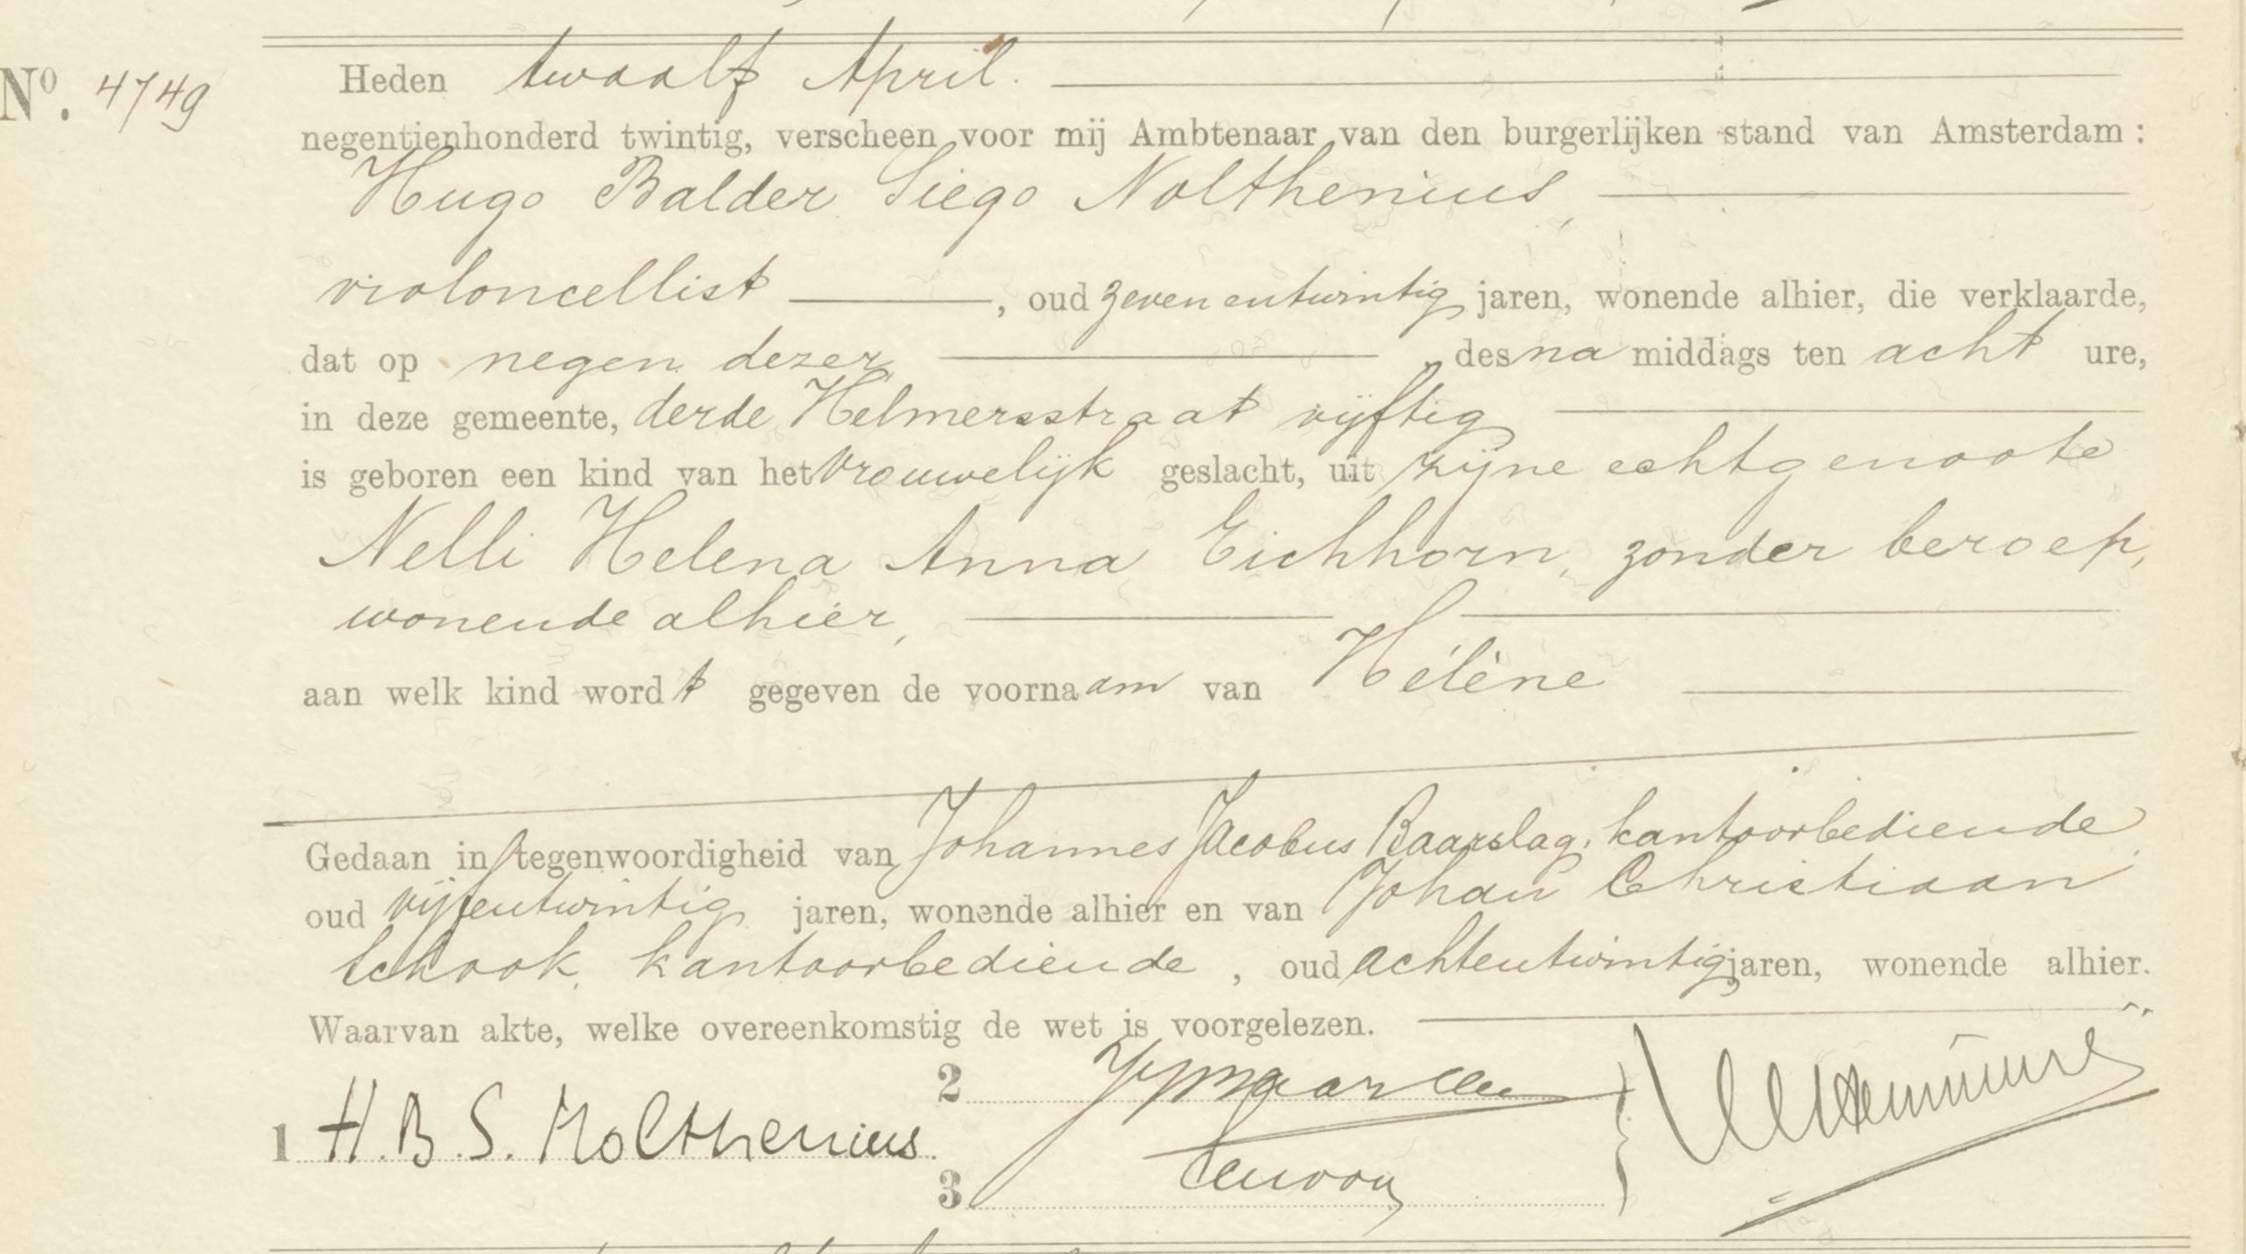 No. 4749
Heden twaalf April.
negentienhonderd twintig, verscheen voor mij Ambtenaar van den burgerlijken stand van Amsterdam:
Hugo Balder Siego Nolthenius,
violoncellist, oud zevenentwintig jaren, wonende alhier, die verklaarde,
dat op negen dezer, des na middags ten acht ure,
in deze gemeente, derde Helmersstraat vijftig
is geboren een kind van het vrouwelijk geslacht, uit zijne echtgenoote
Nelli Helena Anna Eichhorn, zonder beroep,
wonende alhier,
aan welk kind wordt gegeven de voornaam van Hélène
Gedaan in tegenwoordigheid van Johannes Jacobus Baarslag, kantoorbediende,
oud vijfentwintig jaren, wonende alhier en van Johan Christiaan
Schook, kantoorbediende, oud achtentwintig jaren, wonende alhier.
Waarvan akte, welke overeenkomstig de wet is voorgelezen.
2
1 H. B. S. Nolthenius
3